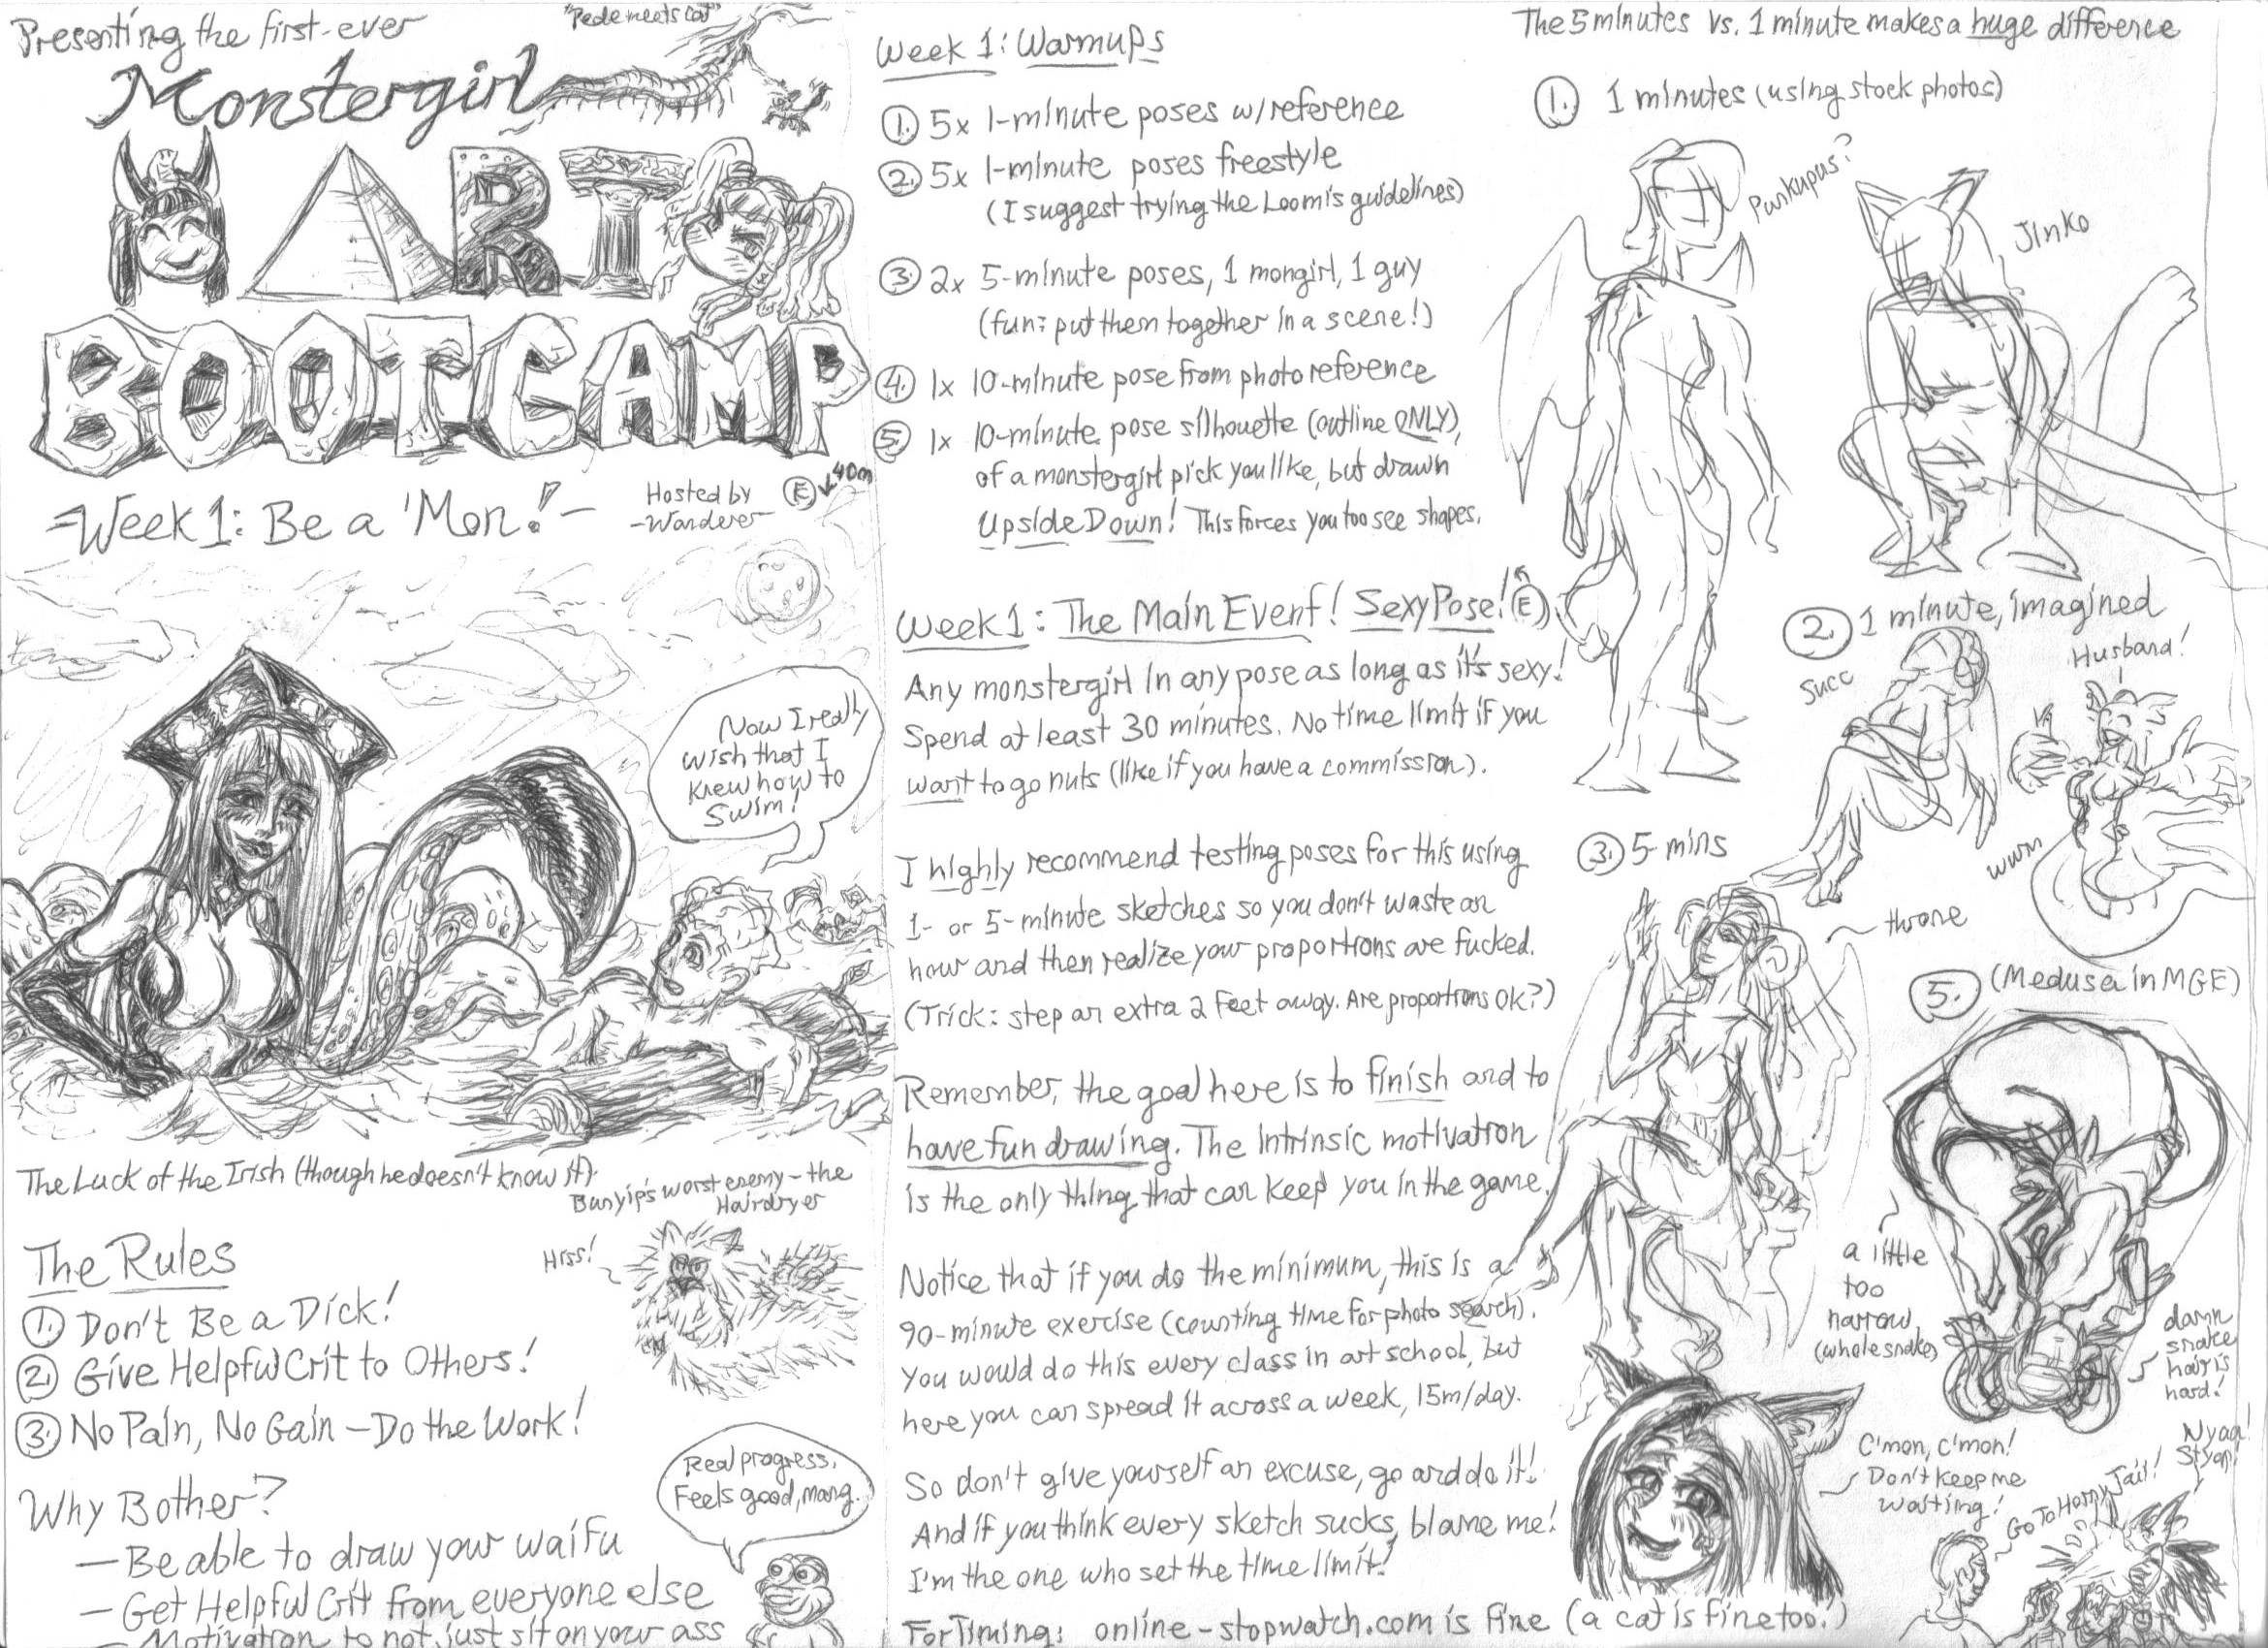 Presenting the first-ever
"Pede meets Cat"
Monstergirl
ART
BOOTCAMP
-Week 1: Be a 'Mon!-
Hosted by
-Wanderer-
E ↓40m
Now I really
wish that I
knew how to
swim!
The Luck of the Irish (though he doesn't know it).
Bunyip's worst enemy - the
Hairdryer
Hiss!
The Rules
1. Don't Be a Dick!
2. Give Helpful Crit to Others!
3. No Pain, No Gain - Do the Work!
Why Bother?
- Be able to draw your waifu
- Get Helpful Crit from everyone else
- Motivation to not just sit on your ass
Real progress.
Feels good, mang.
Week 1: Warmups
1. 5x 1-minute poses w/reference
2. 5x 1-minute poses freestyle
(I suggest trying the Loomis guidelines)
3. 2x 5-minute poses, 1 mongirl, 1 guy
(fun: put them together in a scene!)
4. 1x 10-minute pose from photo reference
5. 1x 10-minute pose silhouette (outline ONLY),
of a monstergirl pick you like, but drawn
Upside Down! This forces you too see shapes.
Week 1: The Main Event! Sexy Pose! E
Any monstergirl in any pose as long as it's sexy!
Spend at least 30 minutes. No time limit if you
want to go nuts (like if you have a commission).
I highly recommend testing poses for this using
1- or 5-minute sketches so you don't waste an
hour and then realize your proportions are fucked.
(Trick: step an extra 2 feet away. Are proportions OK?)
Remember, the goal here is to finish and to
have fun drawing. The intrinsic motivation
is the only thing that can keep you in the game.
Notice that if you do the minimum, this is a
90-minute exercise (counting time for photo search).
You would do this every class in art school, but
here you can spread it across a week, 15m/day.
So don't give yourself an excuse, go and do it!
And if you think every sketch sucks, blame me!
I'm the one who set the time limit!
For Timing: online-stopwatch.com is fine (a cat is fine too!)
The 5 minutes vs. 1 minute makes a huge difference
1. 1 minutes (using stock photos)
Pankupus?
Jinko
2. 1 minute, imagined
Succ
Husband!
wurm
3. 5 mins
throne
5. (Medusa in MGE)
a little
too
narrow
(whole snake)
damn
snake
hair is
hard!
C'mon, c'mon!
Don't keep me
waiting!
Go To Horny Jail!
Nyaa!
Styan!